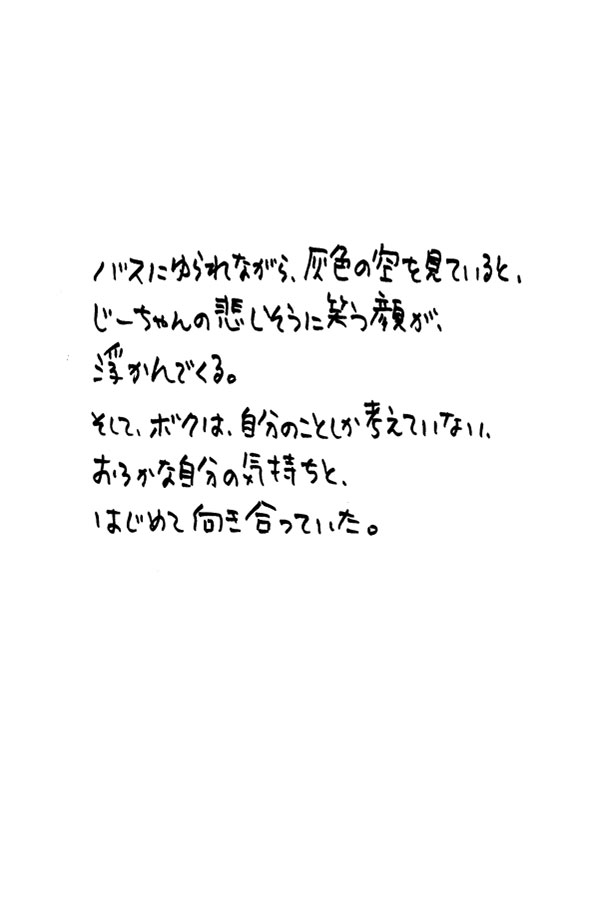 バスにゆられながら、灰色の空を見ていると、
じーちゃんの悲しそうに笑う顔が、
浮かんでくる。
そして、ボクは、自分のことしか考えていない、
おろかな自分の気持ちと、
はじめて向き合っていた。